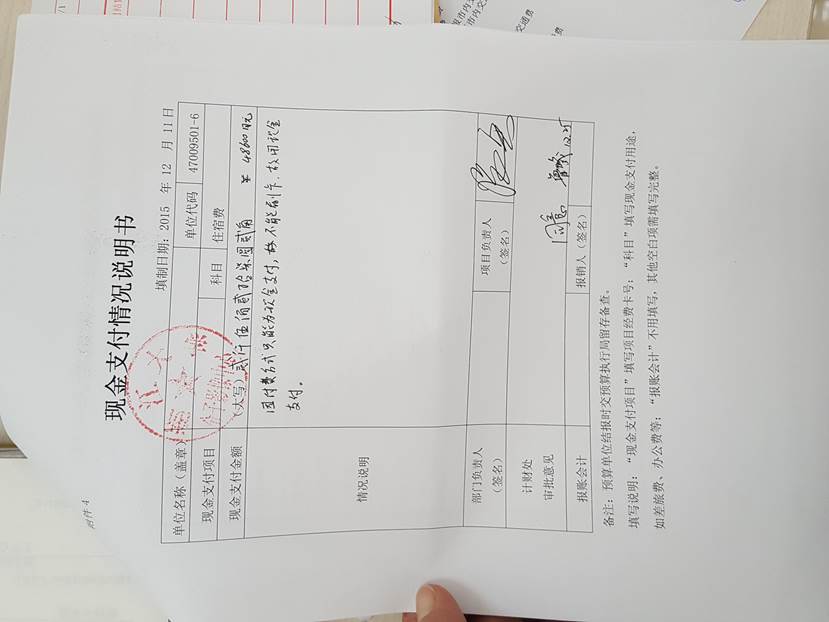 附件4
现金支付情况说明书
填制日期：2015 年 12 月 11日
单位名称（盖章） 单位代码 47009501-6
现金支付项目 科目 住宿费
现金支付金额 （大写）贰仟伍佰贰拾柒圆贰角 ¥ 48600日元
情况说明
因付费方式只能为现金支付，故不能刷卡，故用现金
支付。
部门负责人
（签名）
项目负责人
（签名）
计财处
审批意见
同意
12.25
报账会计 报销人（签名）
备注：预算单位结报时交预算执行局留存备查。
填写说明：“现金支付项目”填写项目经费卡号；“科目”填写现金支付用途，
如差旅费、办公费等；“报账会计”不用填写，其他空白项需填写完整。
市内交
交通费